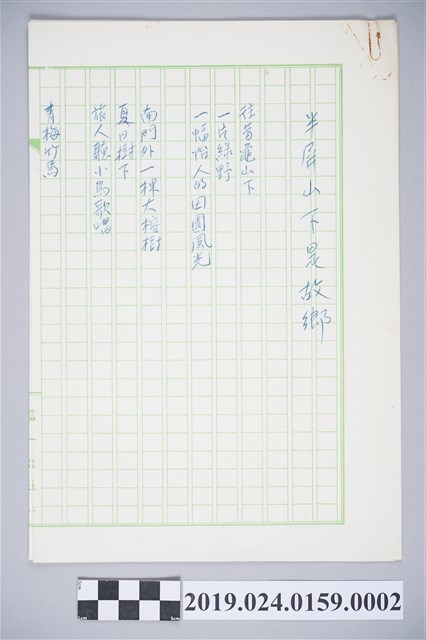 半屏山下是故鄉
往昔龜山下
一片綠野
一幅怡人的田園風光
南門外一棵大榕樹
夏日樹下
旅人聽小鳥歌唱
青梅竹馬
2019.024.0159.0002